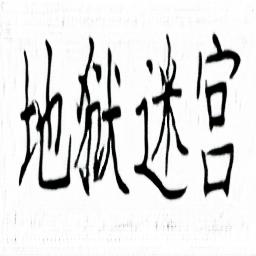 地獄迷宮